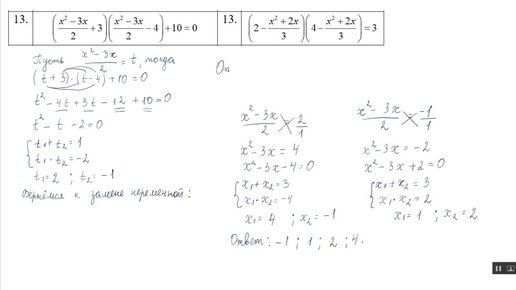 13. ((x² − 3x)/2 + 3)((x² − 3x)/2 − 4) + 10 = 0
13. (2 − (x² + 2x)/3)(4 − (x² + 2x)/3) = 3
Пусть (x² − 3x)/2 = t, тогда
(t + 3)·(t − 4) + 10 = 0
t² − 4t + 3t − 12 + 10 = 0
t² − t − 2 = 0
{ t₁ + t₂ = 1
t₁ · t₂ = −2
t₁ = 2 ; t₂ = −1
Вернёмся к замене переменной:
Оп
(x² − 3x)/2 = 2/1
x² − 3x = 4
x² − 3x − 4 = 0
{ x₁ + x₂ = 3
x₁ · x₂ = −4
x₁ = 4 ; x₂ = −1
(x² − 3x)/2 = −1/1
x² − 3x = −2
x² − 3x + 2 = 0
{ x₁ + x₂ = 3
x₁ · x₂ = 2
x₁ = 1 ; x₂ = 2
Ответ: −1 ; 1 ; 2 ; 4.